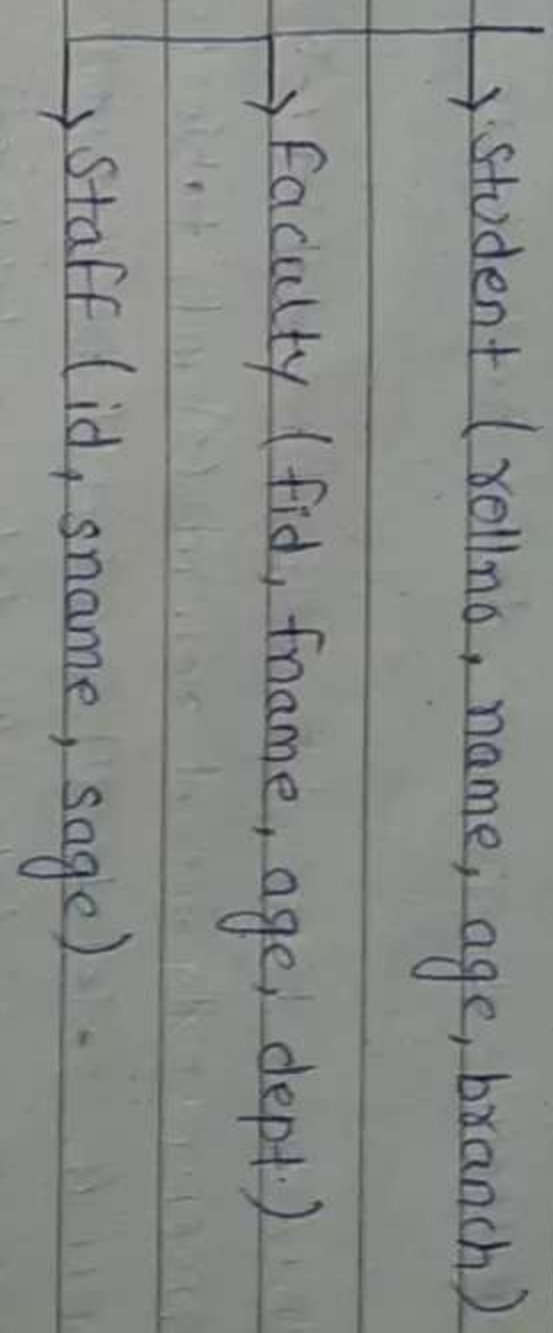 → Student (rollno, name, age, branch)
→ Faculty (fid, fname, age, dept.)
→ Staff (id, sname, sage).